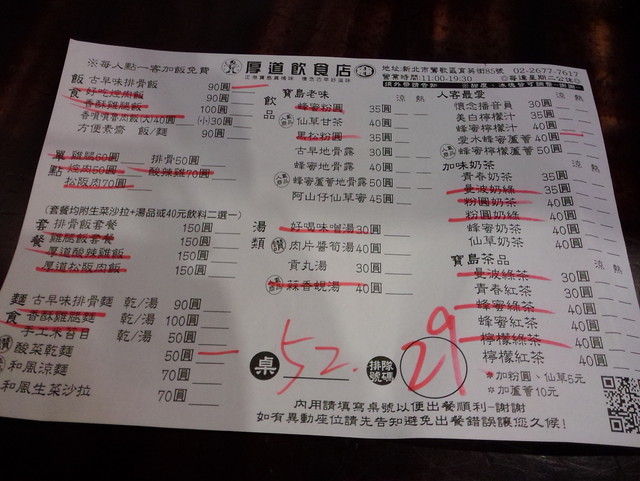 ※每人點一客加飯免費
厚道飲食店
地址:新北市鶯歌區育英街85號 02-2677-7617
營業時間:11:00-19:30 ◎每週星期二公休◎
飯食
古早味排骨飯 90圓
好吃焢肉飯 80圓
香酥雞腿飯 100圓
香噴噴魯肉飯(大)40圓 (小)30圓
方便素齋 飯/麵 90圓
單點
雞腿60圓 排骨50圓
焢肉50圓 酸辣雞70圓
松阪肉70圓
(套餐均附生菜沙拉+湯品或40元飲料二選一)
套餐
排骨飯套餐 150圓
雞腿飯套餐 150圓
厚道酸辣雞飯 150圓
厚道松阪肉飯 150圓
麵食
古早味排骨麵 乾/湯 90圓
香酥雞腿麵 乾/湯 100圓
乾/湯 50圓
酸菜乾麵 50圓
和風涼麵 70圓
和風生菜沙拉 70圓
飲品
寶島老味 涼 熱
蜂蜜粉圓 35圓
仙草甘茶 40圓
黑松粉圓 35圓
古早地骨露 30圓
蜂蜜地骨露 40圓
蜂蜜蘆薈地骨露 50圓
阿山仔仙草蜜 45圓
湯類
好喝味噌湯 30圓
肉片醬筍湯 40圓
貢丸湯 30圓
蒜香蜆湯 40圓
人客最愛 涼 熱
懷念播音員 30圓
美白檸檬汁 35圓
蜂蜜檸檬汁 40圓
愛水蜂蜜檸檬蘆薈 50圓
加味奶茶 涼 熱
青春奶茶 35圓
曼波奶綠 35圓
粉圓奶茶 40圓
粉圓奶綠 40圓
蜂蜜奶茶 40圓
仙草奶茶 40圓
寶島茶品 涼 熱
曼波綠茶 30圓
青春紅茶 30圓
蜂蜜綠茶 40圓
蜂蜜紅茶 40圓
檸檬綠茶 40圓
檸檬紅茶 40圓
*加粉圓、仙草5元
*加蘆薈10元
桌 52. 排隊號碼 29
內用請填寫桌號以便出餐順利-謝謝
如有異動座位請先告知避免出餐錯誤讓您久候!